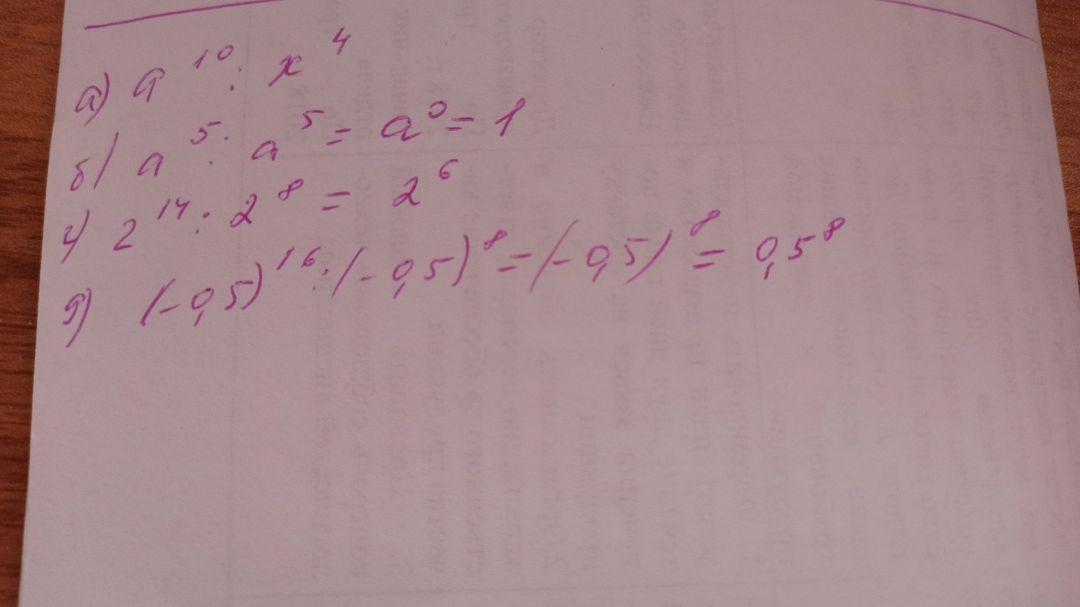 а) a¹⁰ : x⁴
б) a⁵ : a⁵ = a⁰ = 1
г) 2¹⁴ : 2⁸ = 2⁶
д) (-0,5)¹⁶ : (-0,5)⁸ = (-0,5)⁸ = 0,5⁸